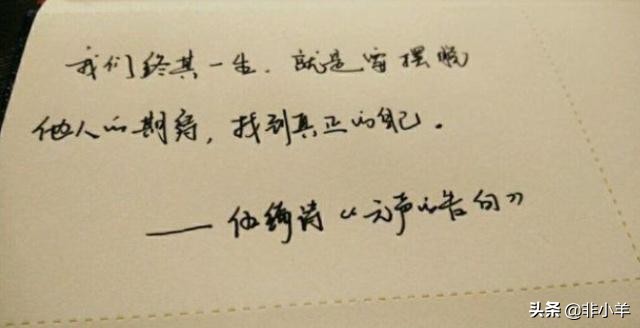 我们终其一生，就是要摆脱
他人的期待，找到真正的自己。
——伍绮诗《无声的告白》
头条 @非小羊